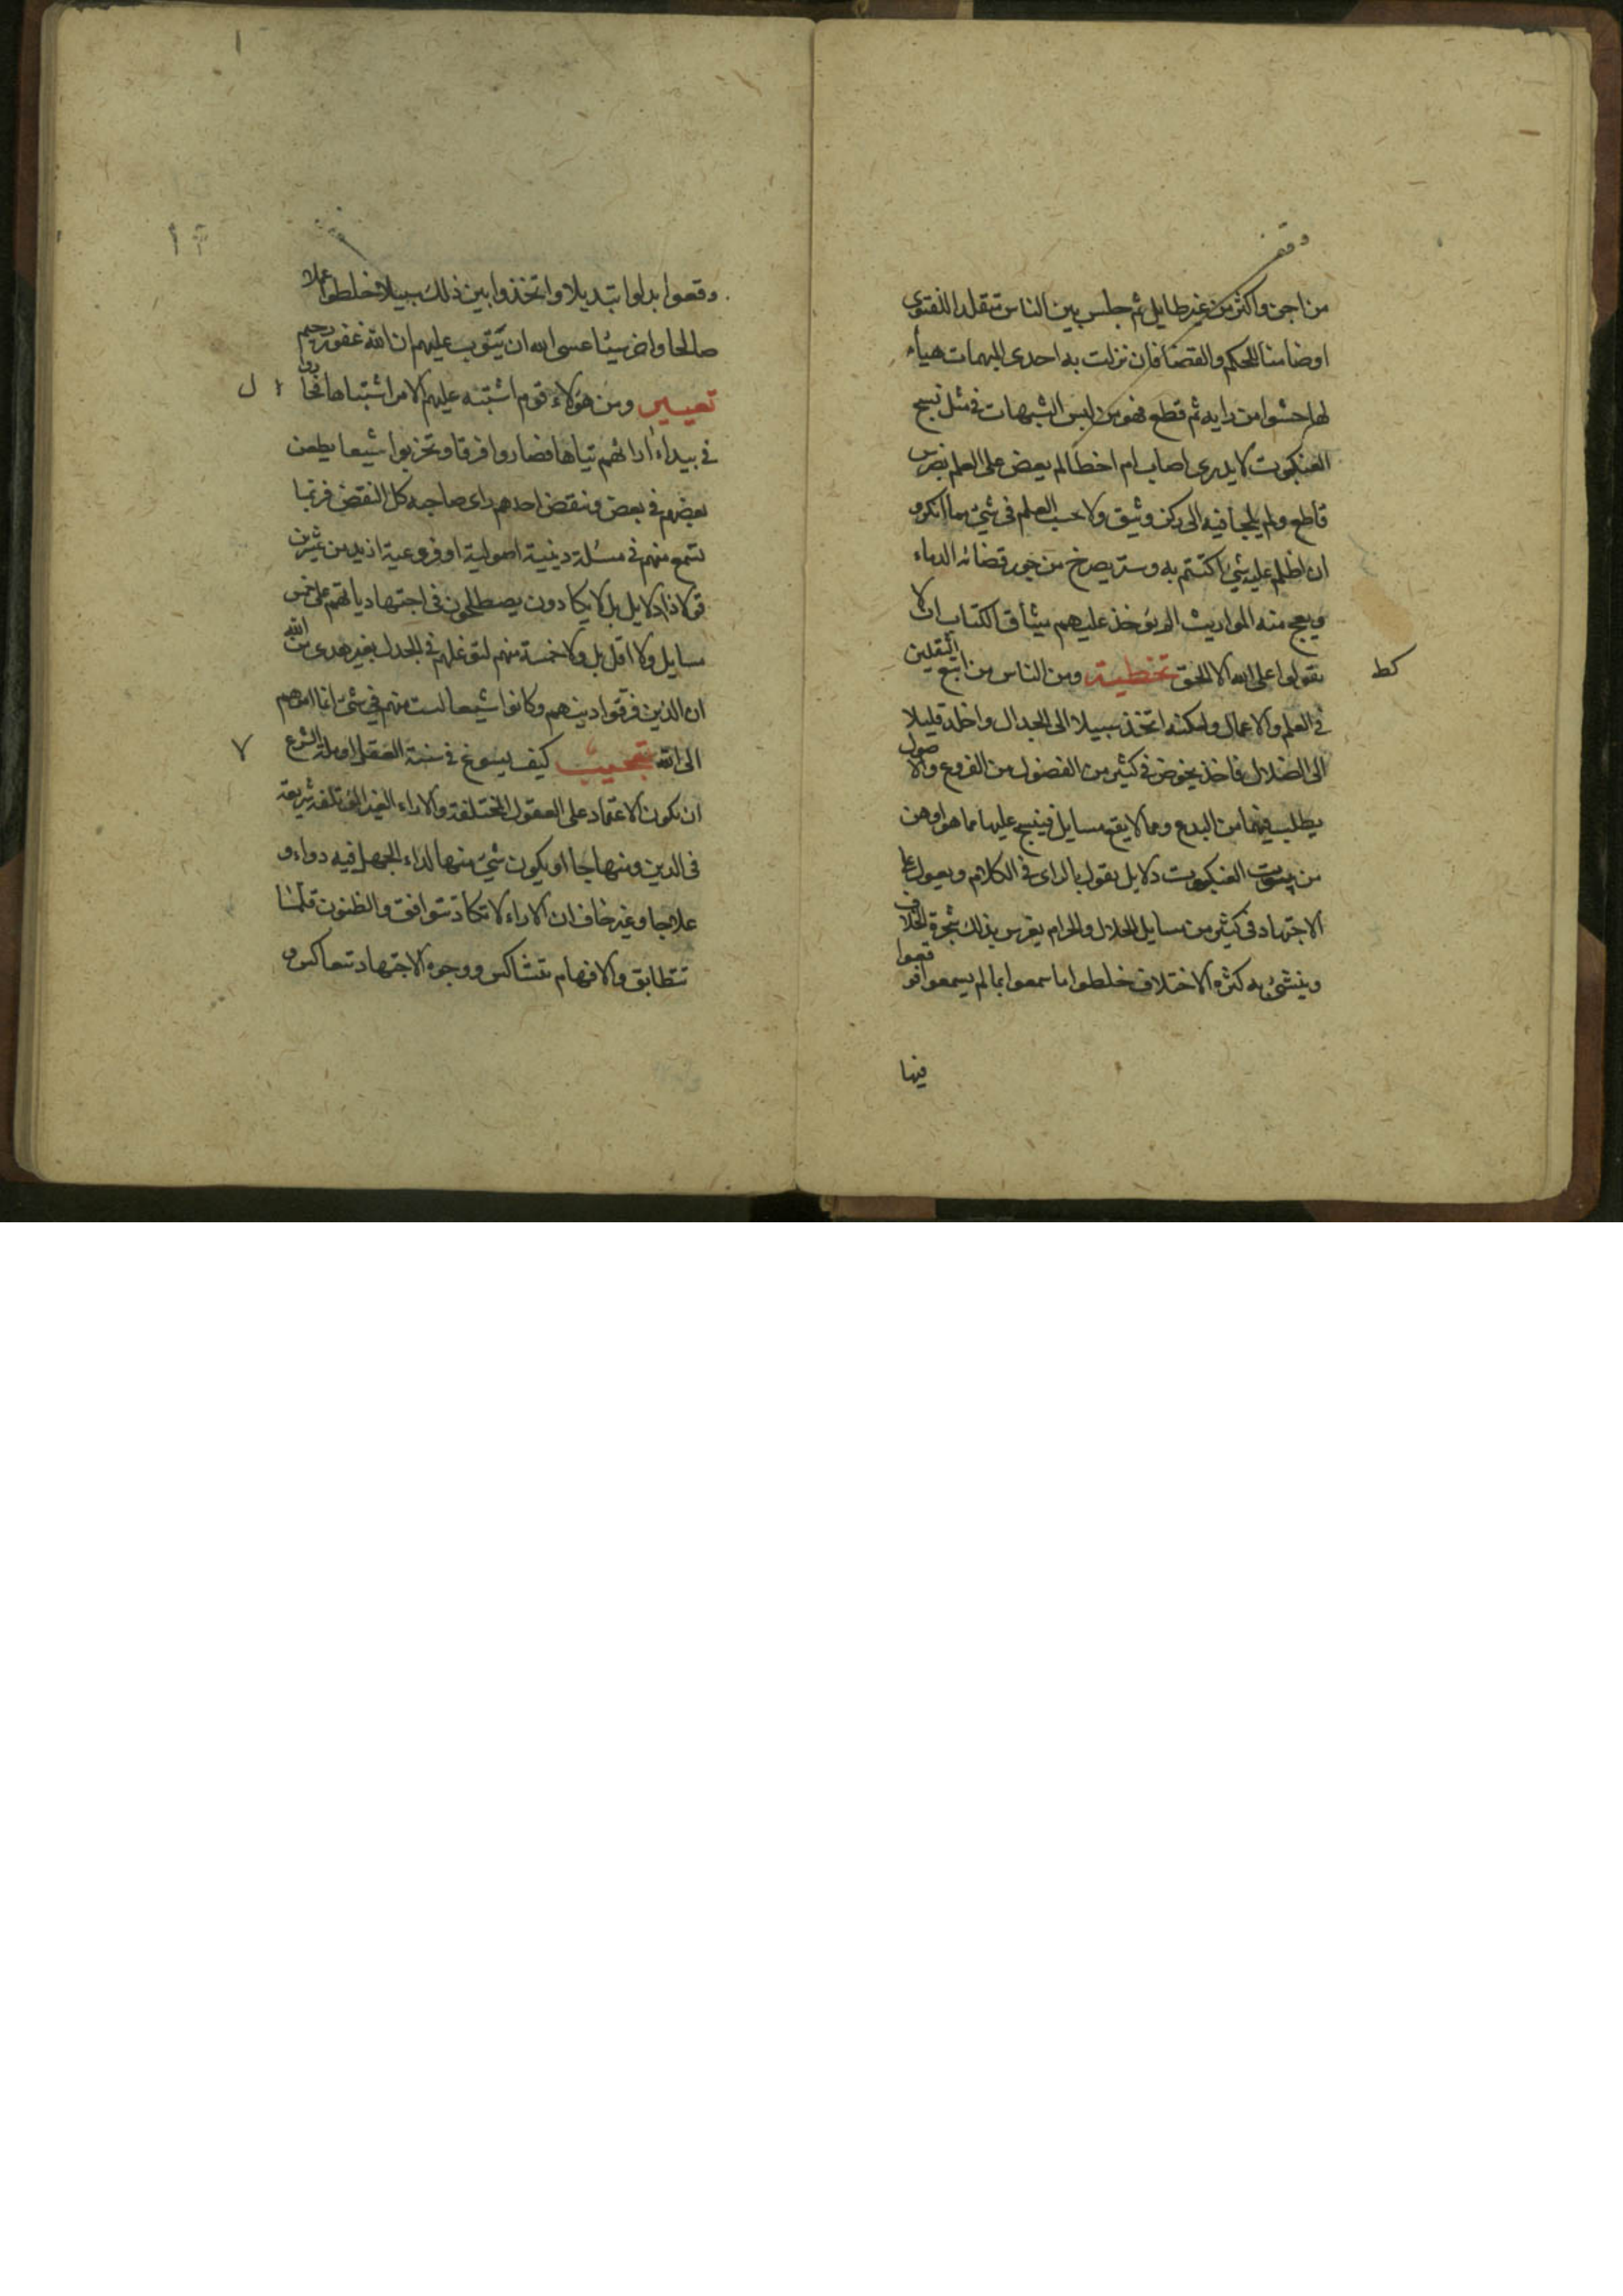 وقف
من اجن واكثر من غير طايل ثم جلس بين الناس متقلدا للفتوى
او ضامنا للحكم والقضا فان نزلت به احدى المبهمات هياء
لها حشوا من رايه ثم قطع فهو من لبس الشبهات في مثل نسج
العنكبوت لا يدرى اصاب ام اخطا لم يعض على العلم بضرس
قاطع ولم يلجأ فيه الى ركن وثيق ولا حسب العلم فى شئ مما انكره
ان اظلم عليه شئ اكتتم به وستر يصرخ من جور قضائه الدماء
ويعج منه المواريث الم يؤخذ عليهم ميثاق الكتاب ان لا
يقولوا على الله الا الحق تخطية ومن الناس من اتبع الثقلين
كط
في العلم والاعمال ولكنه اتخذ سبيلا الى الجدال واخلد قليلا
الى الضلال فاخذ يخوض في كثير من الفضول من الفروع والاصول
يطلب فيهما من البدع ومما لا يقع مسايل فينسج عليها مما هو اوهن
من بيوت العنكبوت دلايل يقول بالراى في الكلام ويعول على
الاجتهاد فى كثير من مسايل الحلال والحرام يغرس بذلك شجرة الخلاف
وينشئ به كثرة الاختلاف خلطوا ما سمعوا بما لم يسمعوا فوقعوا
فيها
وقعوا بدلوا تبديلا واتخذوا بين ذلك سبيلا خلطوا عملا
صالحا واخر سيئا عسى الله ان يتوب عليهم ان الله غفور رحيم
تعيير ومن هؤلاء قوم اشتبه عليهم الامر اشتباها فحاروا
ل
في بيداء ارائهم تياها فصاروا فرقا وتحزبوا شيعا يطعن
بعضهم في بعض وينقض احدهم راى صاحبه كل النقض فربما
تسمع منهم في مسئلة دينية اصولية او فروعية ازيد من عشرين
قولا ذا دلايل بل لا يكادون يصطلحون فى اجتهادياتهم على خمس
مسايل ولا اقل بل ولا خمسة منهم لتوغلهم فى الجدل بغير هدى من الله
ان الذين فرقوا دينهم وكانوا شيعا لست منهم في شئ انما امرهم
الى الله تعجيب كيف يسوغ في سنة العقل او ملة الشرع
٧
ان يكون الاعتماد على العقول المختلفة والاراء الغير المؤتلفة شريعة
فى الدين ومنهاجا او يكون شئ منها لداء الجهل فيه دواء و
علاجا وغير خاف ان الاراء لا تكاد تتوافق والظنون قلما
تتطابق والافهام تتشاكس ووجوه الاجتهاد تتعاكس و